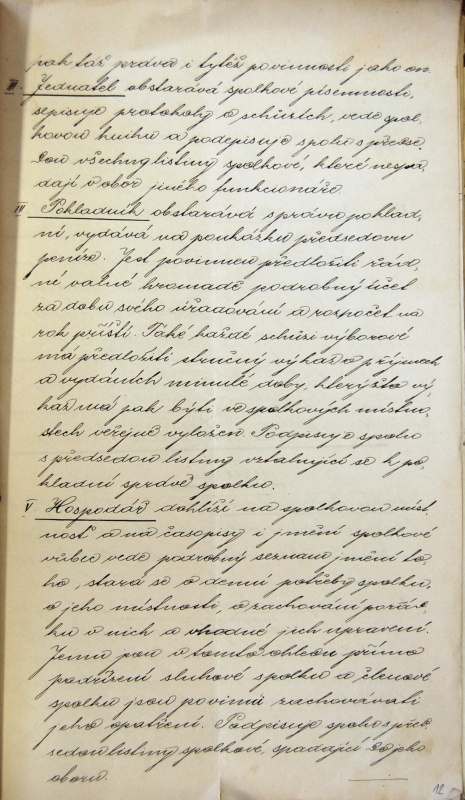 pak táž práva i tytéž povinnosti jako on.
III. Jednatel obstarává spolkové písemnosti,
sepisuje protokoly o schůzích, vede spol-
kovou knihu a podepisuje spolu s předse-
dou všechny listiny spolkové, které nespa-
dají v obor jiného funkcionáře.
IV Pokladník obstarává správu poklad-
ní, vydává na poukázku předsedovu
peníze. Jest povinen předložiti řád-
né valné hromadě podrobný účet
za dobu svého úřadování a rozpočet na
rok příští. Také každé schůzi výborové
má předložiti stručný výkaz o příjmech
a vydáních minulé doby, kterýžto vý-
kaz má pak býti ve spolkových místno-
stech veřejně vyložen. Podpisuje spolu
s předsedou listiny vztahující se k po-
kladní správě spolku.
V Hospodář dohlíží na spolkovou míst-
nosť a na časopisy i jmění spolkové
vůbec vede podrobný seznam jmění to-
ho, stará se o denní potřeby spolku,
o jeho místnosti, o zachování pořád-
ku v nich a vhodné jich upravení.
Jemu jsou v tomto ohledu přímo
podřízeni sluhové spolku a členové
spolku jsou povinni zachovávati
jeho opatření. Podpisuje spolu s před-
sedou listiny spolkové, spadající do jeho
oboru.
12